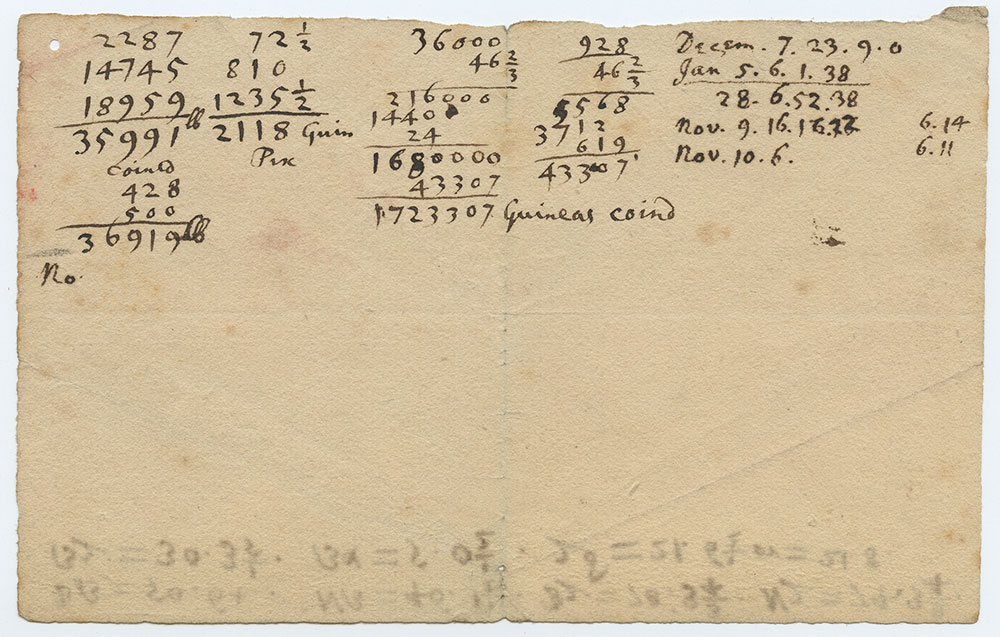 2287 72 1/2 36000 928 Decem. 7. 23. 9. 0
14745 810 46 2/3 46 2/3 Jan 5. 6. 1. 38
18959 1235 1/2 216000 5568 28. 6. 52. 38
35991 lb 2118 Guin 14400 3712 Nov. 9. 16. 6.14
coined Pix 24 619 Nov. 10. 6. 6.11
428 1680000 43307
500 43307
36919 lb 1723307 Guineas coind
No